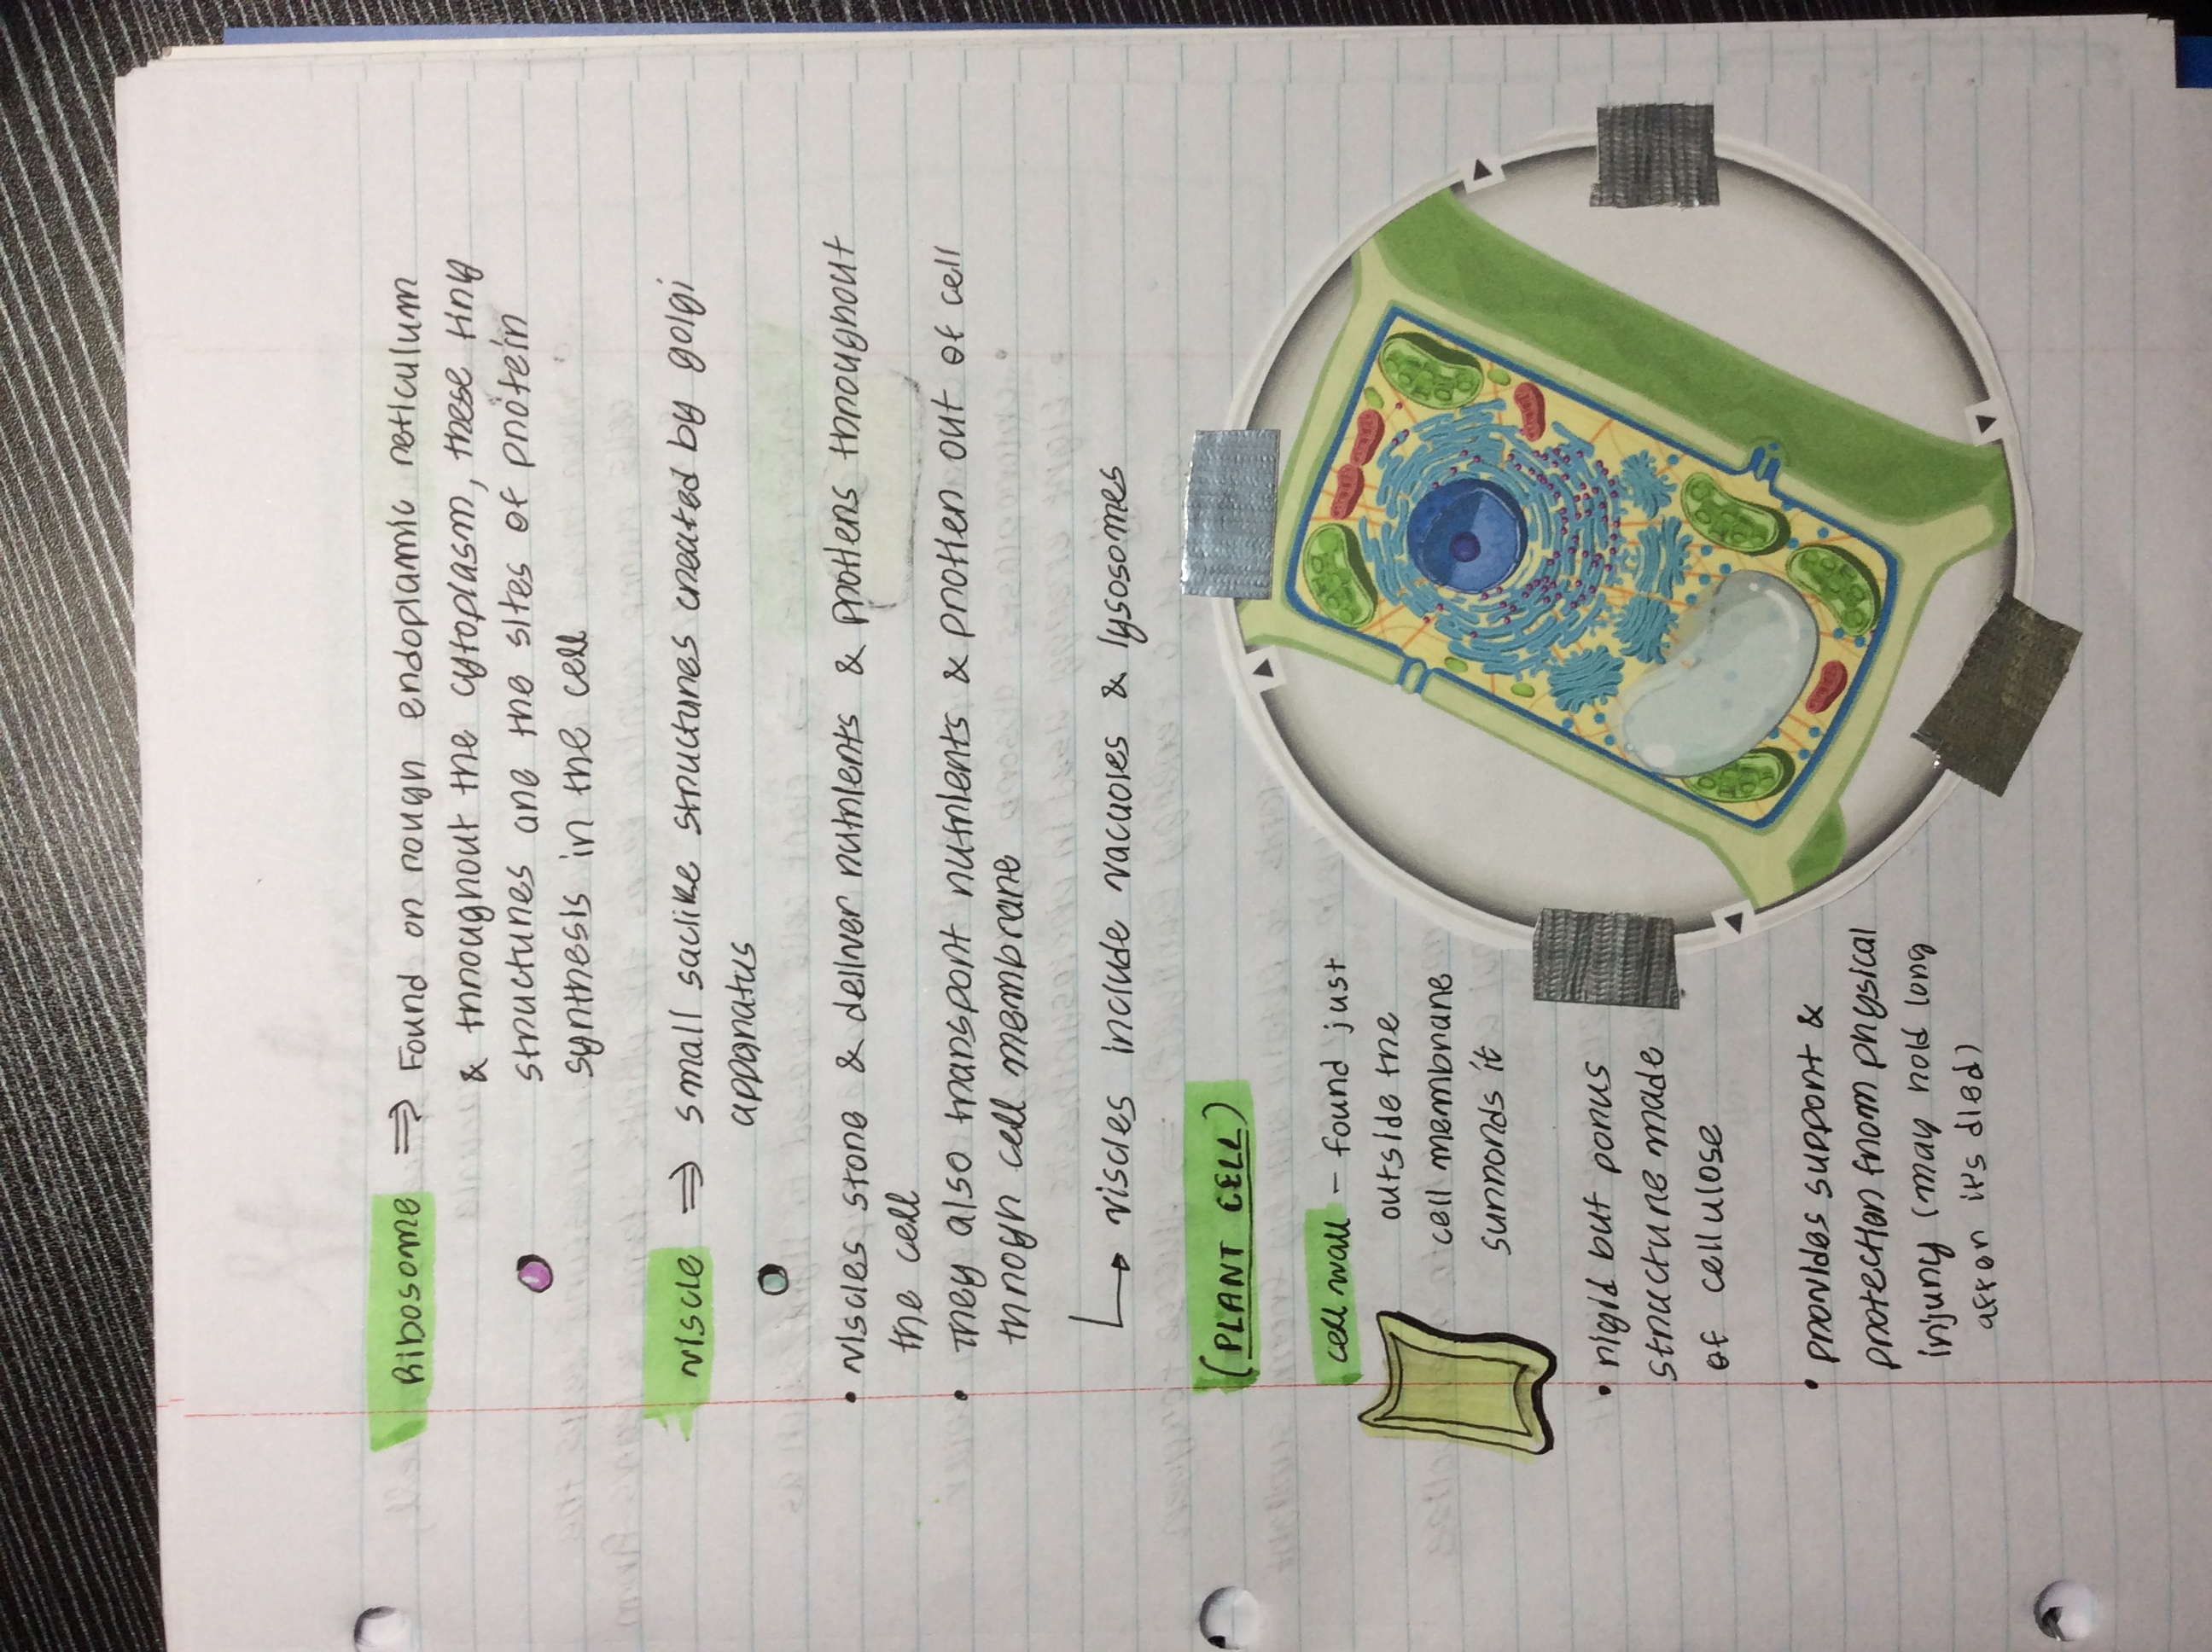 Ribosome ⇒ Found on rough endoplamic reticulum
& throughout the cytoplasm, these tiny
structures are the sites of protein
synthesis in the cell
viscle ⇒ small saclike structures created by golgi
apparatus
• viscles store & deliver nutrients & pproteins throughout
the cell
• They also transport nutrients & protien out of cell
throgyn cell membrane
↳ viscles include vacuoles & lysosomes
(PLANT CELL)
cell wall - found just
outside the
cell membrane
surronds it
• rigid but porus
structure made
of cellulose
• provides support &
protection from physical
injury (may hold long
after it's died)